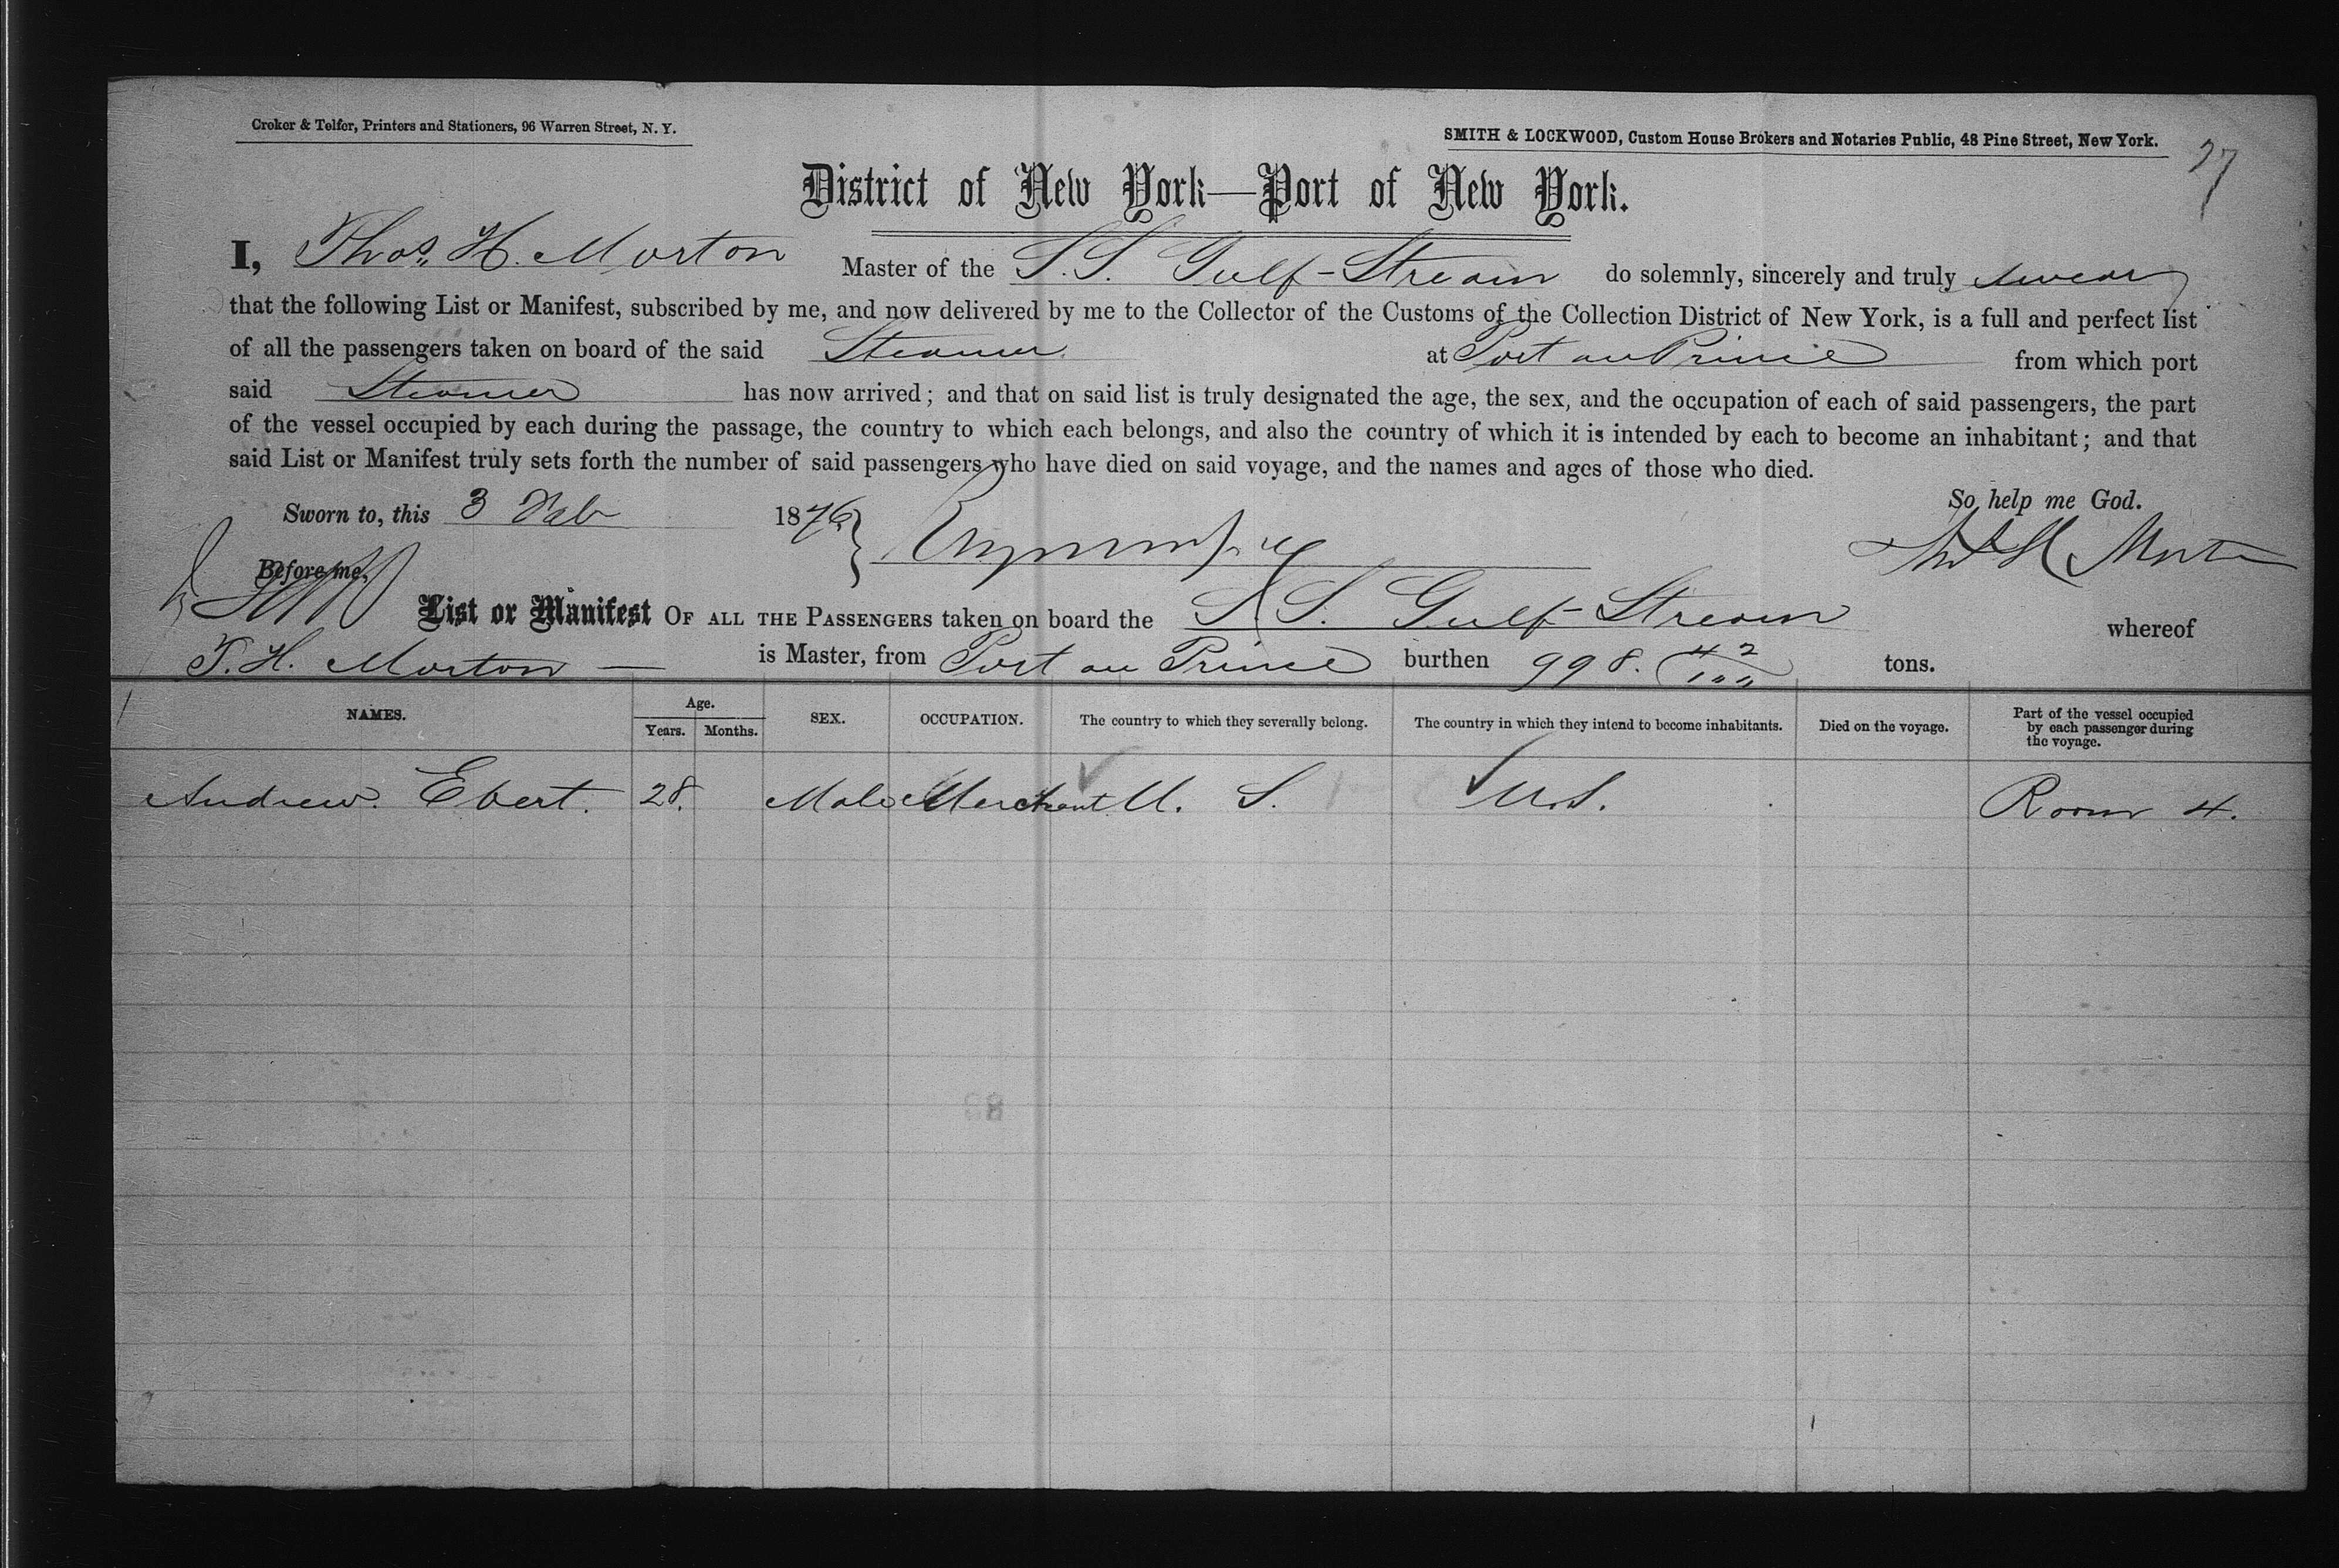 Croker & Telfer, Printers and Stationers, 96 Warren Street, N. Y.
SMITH & LOCKWOOD, Custom House Brokers and Notaries Public, 48 Pine Street, New York.
27
District of New York—Port of New York.
I, Thos. H. Morton Master of the S.S. Gulf-Stream do solemnly, sincerely and truly swear
that the following List or Manifest, subscribed by me, and now delivered by me to the Collector of the Customs of the Collection District of New York, is a full and perfect list
of all the passengers taken on board of the said Steamer at Port au Prince from which port
said Steamer has now arrived; and that on said list is truly designated the age, the sex, and the occupation of each of said passengers, the part
of the vessel occupied by each during the passage, the country to which each belongs, and also the country of which it is intended by each to become an inhabitant; and that
said List or Manifest truly sets forth the number of said passengers who have died on said voyage, and the names and ages of those who died.
So help me God.
Sworn to, this 3 Feb 1876
Thos H Morton
Before me,
List or Manifest OF ALL THE PASSENGERS taken on board the S.S. Gulf-Stream whereof
T. H. Morton — is Master, from Port au Prince burthen 998. 42/100 tons.
NAMES. Age. Years. Months. SEX. OCCUPATION. The country to which they severally belong. The country in which they intend to become inhabitants. Died on the voyage. Part of the vessel occupied by each passenger during the voyage.
Andrew. Ebert. 28. Male Merchant U. S. U.S. Room 4.